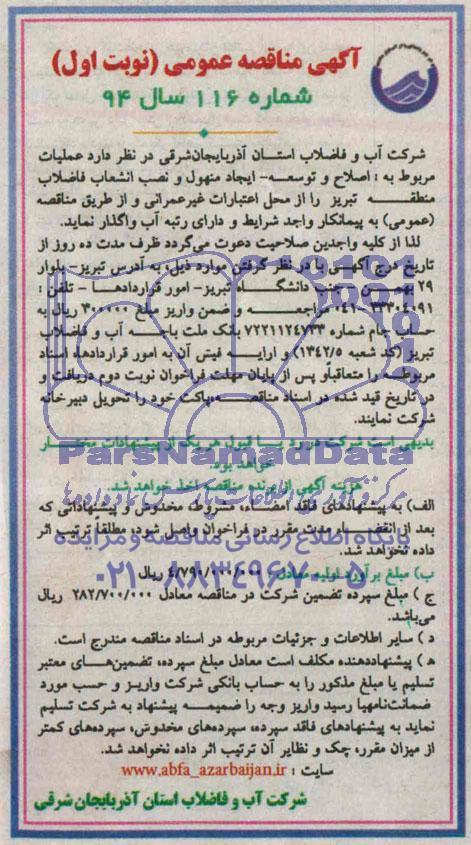 آگهی مناقصه عمومی (نوبت اول)
شماره ۱۱۶ سال ۹۴
شرکت آب و فاضلاب استان آذربایجان‌شرقی در نظر دارد عملیات
مربوط به : اصلاح و توسعه- ایجاد منهول و نصب انشعاب فاضلاب
منطقه تبریز را از محل اعتبارات غیرعمرانی و از طریق مناقصه
(عمومی) به پیمانکار واجد شرایط و دارای رتبه آب واگذار نماید.
لذا از کلیه واجدین صلاحیت دعوت می‌گردد ظرف مدت ده روز از
تاریخ درج آگهی با در نظر گرفتن موارد ذیل، به آدرس تبریز- بلوار
۲۹ بهمن - جنب دانشگاه تبریز- امور قراردادها - تلفن :
مراجعه و ضمن واریز مبلغ ۳۰۰۰۰۰ ریال به
حساب جام شماره ۷۲۲۱۱۲۴۷۳۳ بانک ملت باجه آب و فاضلاب
تبریز (کد شعبه ۱۳۴۲/۵) و ارایه فیش آن به امور قراردادها، اسناد
مربوطه را متعاقباً و پس از پایان مهلت فراخوان نوبت دوم دریافت و
در تاریخ قید شده در اسناد مناقصه، پاکت خود را تحویل دبیرخانه
شرکت نمایند.
بدیهی است شرکت در رد یا قبول هر یک از پیشنهادات مختار
خواهد بود.
هزینه آگهی از برنده مناقصه اخذ خواهد شد.
الف) به پیشنهادهای فاقد امضاء، مشروط، مخدوش و پیشنهاداتی که
بعد از انقضاء مدت مقرر در فراخوان واصل شود، مطلقا ترتیب اثر
داده نخواهد شد.
ب) مبلغ برآورد اولیه معادل ریال
ج ) مبلغ سپرده تضمین شرکت در مناقصه معادل ۲۸۲/۷۰۰/۰۰۰ ریال
می‌باشد.
د ) سایر اطلاعات و جزئیات مربوطه در اسناد مناقصه مندرج است.
ه ) پیشنهاددهنده مکلف است معادل مبلغ سپرده، تضمین‌های معتبر
تسلیم یا مبلغ مذکور را به حساب بانکی شرکت واریز و حسب مورد
ضمانت‌نامه‌یا رسید واریز وجه را ضمیمه پیشنهاد به شرکت تسلیم
نماید به پیشنهادهای فاقد سپرده، سپرده‌های مخدوش، سپرده‌های کمتر
از میزان مقرر، چک و نظایر آن ترتیب اثر داده نخواهد شد.
سایت : www.abfa_azarbaijan.ir
شرکت آب و فاضلاب استان آذربایجان شرقی
ParsNamadData
پایگاه اطلاع رسانی مناقصه و مزایده
۰۲۱-۸۸۳۴۹۶۷۰-۵